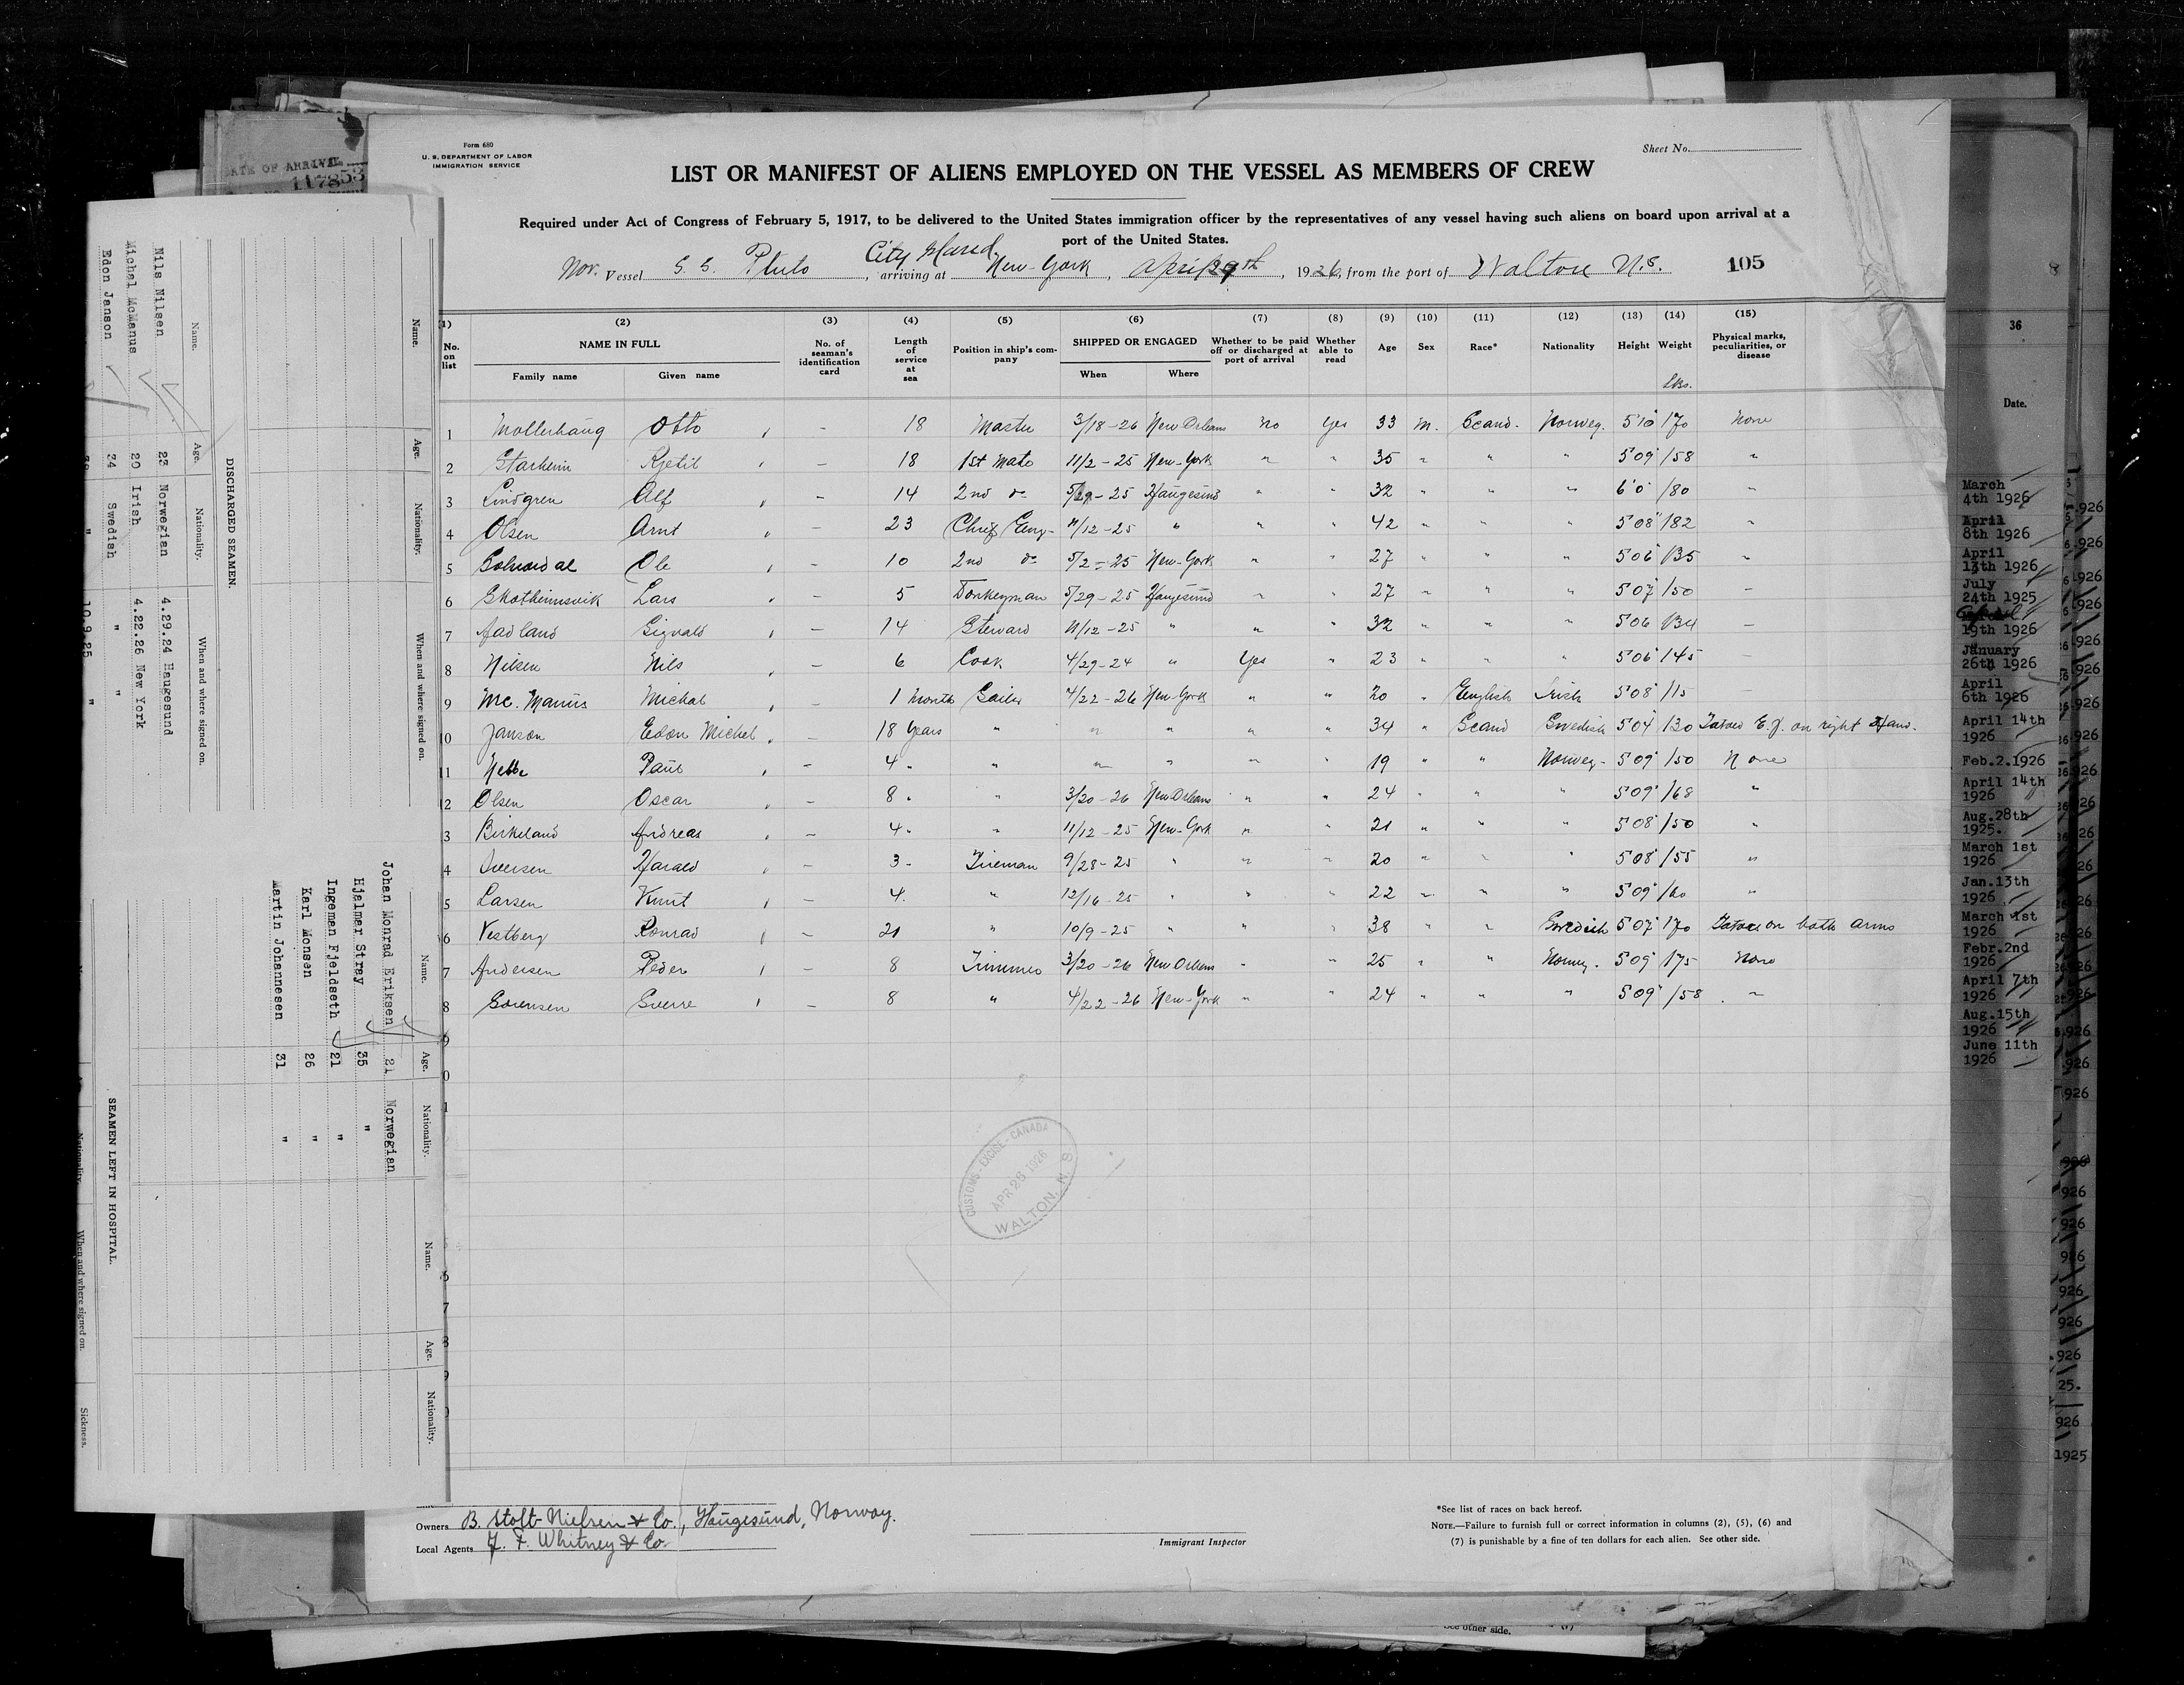 Form 680
U. S. DEPARTMENT OF LABOR
IMMIGRATION SERVICE
Sheet No.
LIST OR MANIFEST OF ALIENS EMPLOYED ON THE VESSEL AS MEMBERS OF CREW
Required under Act of Congress of February 5, 1917, to be delivered to the United States immigration officer by the representatives of any vessel having such aliens on board upon arrival at a
port of the United States.
Nor. Vessel S. S. Pluto, arriving at City Island New-York, April 29th, 1926, from the port of Walton N.S. 105
(1) (2) (3) (4) (5) (6) (7) (8) (9) (10) (11) (12) (13) (14) (15)
No. on list NAME IN FULL Family name Given name No. of seaman's identification card Length of service at sea Position in ship's company SHIPPED OR ENGAGED When Where Whether to be paid off or discharged at port of arrival Whether able to read Age Sex Race* Nationality Height Weight Physical marks, peculiarities, or disease
Lbs.
1 Mollerhaug Otto - 18 Master 3/18-26 New Orleans No Yes 33 M. Scand. Norweg. 5'10" 170 None
2 Starheim Kjetil - 18 1st Mate 11/2-25 New-York " " 35 " " " 5'09" 158 "
3 Lindgren Alf - 14 2nd do 5/29-25 Haugesund " " 32 " " " 6'0" 180 "
4 Olsen Arnt - 23 Chief Eng. 11/12-25 " " " 42 " " " 5'08" 182 "
5 Ole - 10 2nd do 5/2-25 New-York " " 27 " " " 5'06" 135 "
6 Skotheimsvik Lars - 5 Donkeyman 5/29-25 Haugesund " " 27 " " " 5'07" 150 -
7 Fadland Sigvald - 14 Steward 11/12-25 " " " 32 " " " 5'06 134 -
8 Nilsen Nils - 6 Cook 4/29-24 " Yes " 23 " " " 5'06" 145 -
9 Mc. Manus Michal 1 Month Sailor 4/22-26 New-York " " 20 " English Irish 5'08" 115 -
10 Janson Edon Michel - 18 Years " " " " " 34 " Scand Swedish 5'04" 130 Tatoed E. J. on right Hand.
11 Paul - 4 " " " " " " 19 " " Norweg. 5'09" 150 None
2 Olsen Oscar - 8 " " 3/20-26 New Orleans " " 24 " " " 5'09" 168 "
3 Birkeland Andreas - 4 " " 11/12-25 New-York " " 21 " " " 5'08" 150 "
4 Iversen Harald - 3 - Fireman 9/28-25 " " " 20 " " " 5'08" 155 "
5 Larsen Knut - 4 " 12/16-25 " " " 22 " " " 5'09" 160 "
6 Vestberg Konrad - 21 " 10/9-25 " " " 38 " " Swedish 5'07" 170 Tatoe on both arms
7 Andersen Peder - 8 Trimmer 3/20-26 New Orleans " " 25 " " Norweg. 5'09" 175 None
8 Sorensen Sverre - 8 " 4/22-26 New-York " " 24 " " " 5'09" 158 "
CUSTOMS-EXCISE-CANADA
APR 26 1926
WALTON, N. S.
Owners B. Stolt-Nielsen & Co., Haugesund, Norway.
Local Agents F. Whitney & Co.
Immigrant Inspector
*See list of races on back hereof.
NOTE.—Failure to furnish full or correct information in columns (2), (5), (6) and
(7) is punishable by a fine of ten dollars for each alien. See other side.
DATE OF ARRIVAL
117853
DISCHARGED SEAMEN.
Name. Age. Nationality. When and where signed on.
Nils Nilsen 23 Norwegian 4.29.24 Haugesund
Michal McManus 20 Irish 4.22.26 New York
Edon Janson 34 Swedish " "
" 10.9.25 "
Name. Age. Nationality. When and where signed on.
Name. Age. Nationality.
Johan Monrad Eriksen 21 Norwegian
Hjalmar Stray 35 "
Ingeman Fjeldseth 21 "
Karl Monsen 26 "
Martin Johannesen 31 "
Name. Age. Nationality.
SEAMEN LEFT IN HOSPITAL.
When and where signed on. Sickness.
36
Date.
March
4th 1926
April
8th 1926
April
13th 1926
July
24th 1925
19th 1926
January
26th 1926
April
6th 1926
April 14th
1926
Feb.2.1926
April 14th
1926
Aug.28th
1925.
March 1st
1926
Jan.13th
1926
March 1st
1926
Febr.2nd
1926
April 7th
1926
Aug.15th
1926
June 11th
1926
See other side.